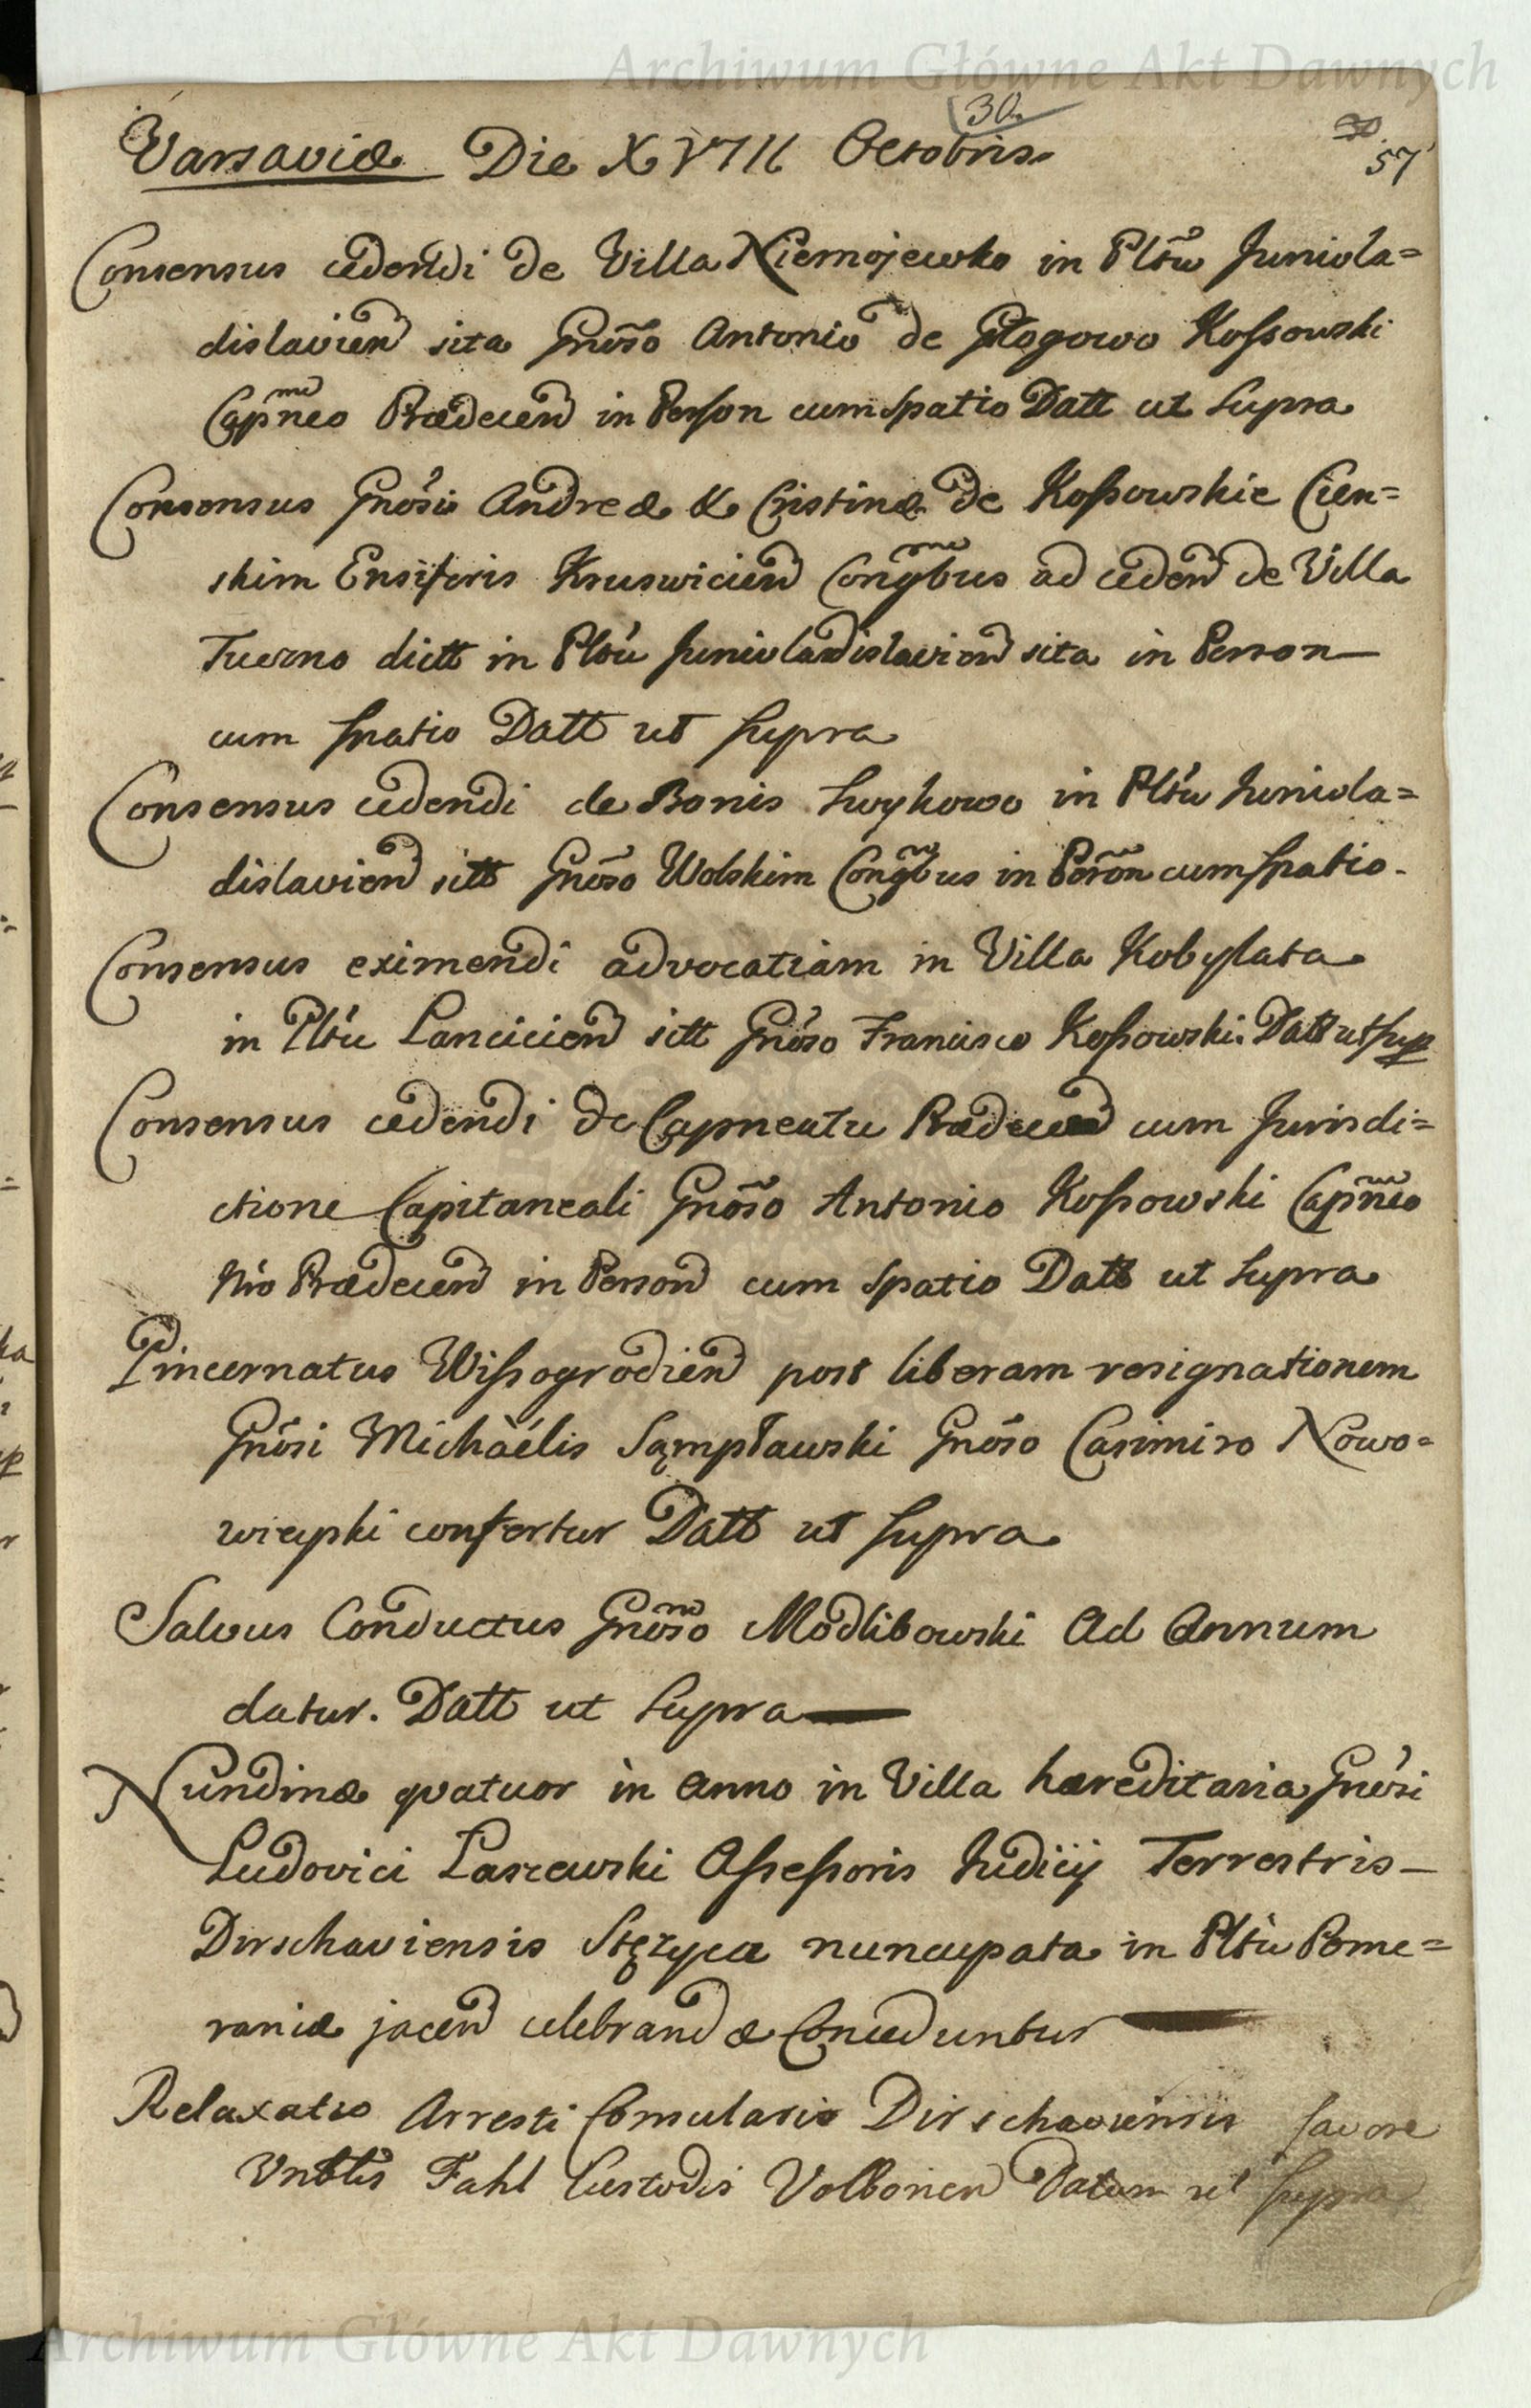 Archiwum Główne Akt Dawnych
30.
57
Varsaviæ Die XVIII Octobris
Consensus cedendi de Villa Niemojewko in Pltũ Junivla=
dislavien sita Gnõso Antonio de Głogowo Kossowski
Capneo Prædecen in Person cum spatio Datt ut supra
Consensus Gnosis Andreæ & Cristinæ de Kossowskie Cien=
skim Ensiferis Kruswicien Congbus ad ceden de Villa
Tuczno dictt in Pltu Junivladislavien sita in Person
cum spatio Datt ut supra
Consensus cedendi de Bonis Lwykowo in Pltu Junivla=
dislavien sitt Gnoso Wolskim Congbus in Person cum spatio.
Consensus eximendi advocatiam in Villa Kobylata
in Pltu Lancicien sitt Gnoso Francisco Kossowski. Datt ut sup
Consensus cedendi de Capneatu Prædecen cum Jurisdi=
ctione Capitaneali Gnõso Antonio Kossowski Capneo
Nro Prædecen in Person cum spatio Datt ut supra
Pincernatus Wissogrodien post liberam resignationem
Gnosi Michaëlis Sąmpławski Gnoso Casimiro Nowo=
wieyski confertur Datt ut supra
Salvus Conductus Gnoso Modlibowski Ad Annum
datur. Datt ut supra
Nundinæ qvatuor in Anno in Villa hæreditaria Gnosi
Ludovici Laszewski Assessoris Judicij Terrestris
Dirschaviensis Stęzyca nuncupata in Pltu Pome=
raniæ jacen celebrandæ Conceduntur
Relaxatio Arresti Consularis Dirschaviensis favore
Vnbtis Fahl Custodis Datum ut supra
Archiwum Główne Akt Dawnych